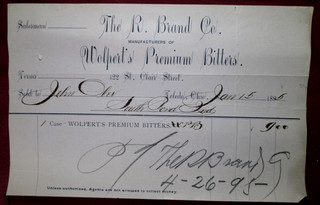 Salesman
The R. Brand Co.
MANUFACTURERS OF
Wolpert's Premium Bitters.
Terms 122 St. Clair Street.
Sold to John Toledo, Ohio, Jan 15
South Bend Ind
1 Case WOLPERT'S PREMIUM BITTERS, 900
The R Brand Co
4-26-95
Unless authorized, Agents are not allowed to collect money.